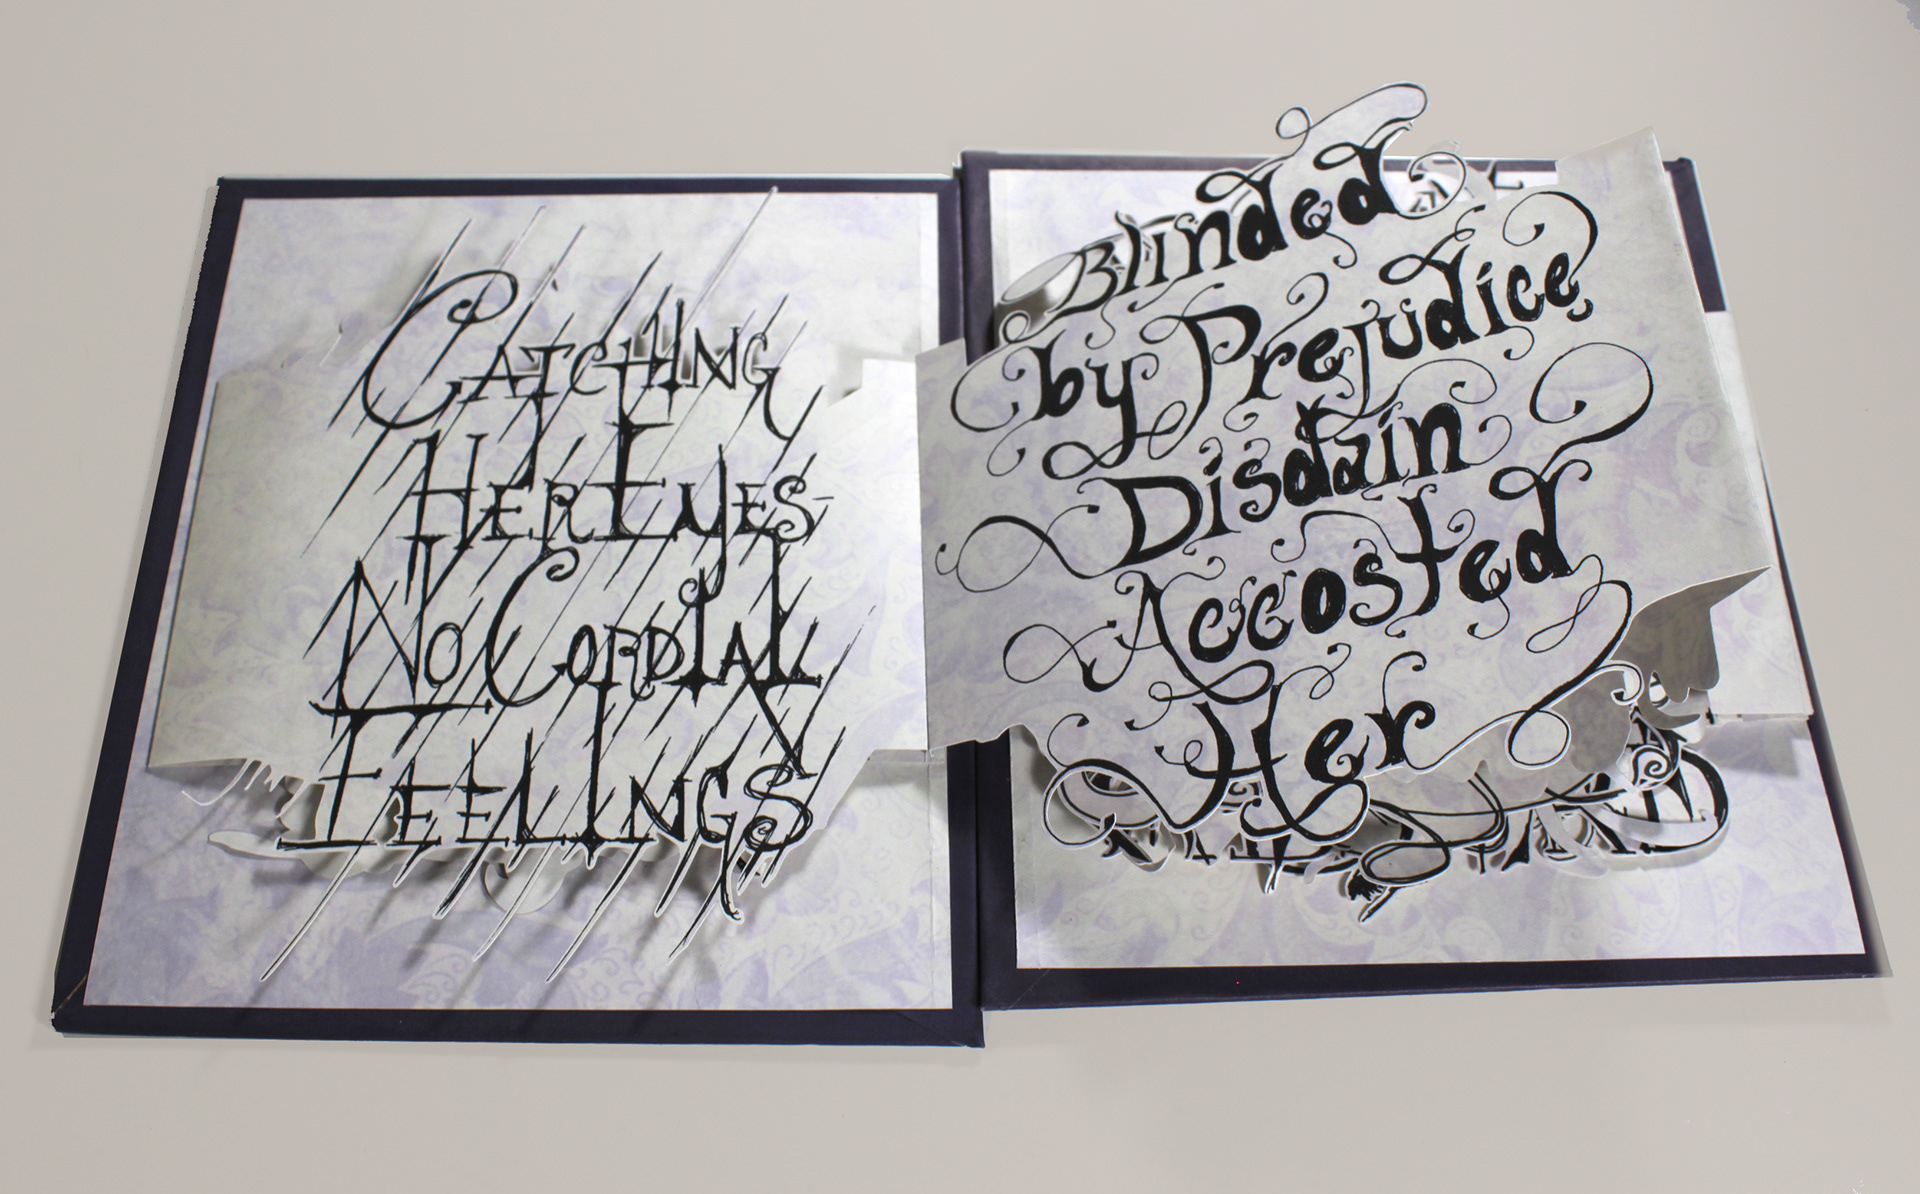 Catching
Her Eyes-
No Cordial
Feelings
Blinded
by Prejudice
Disdain
Accosted
Her